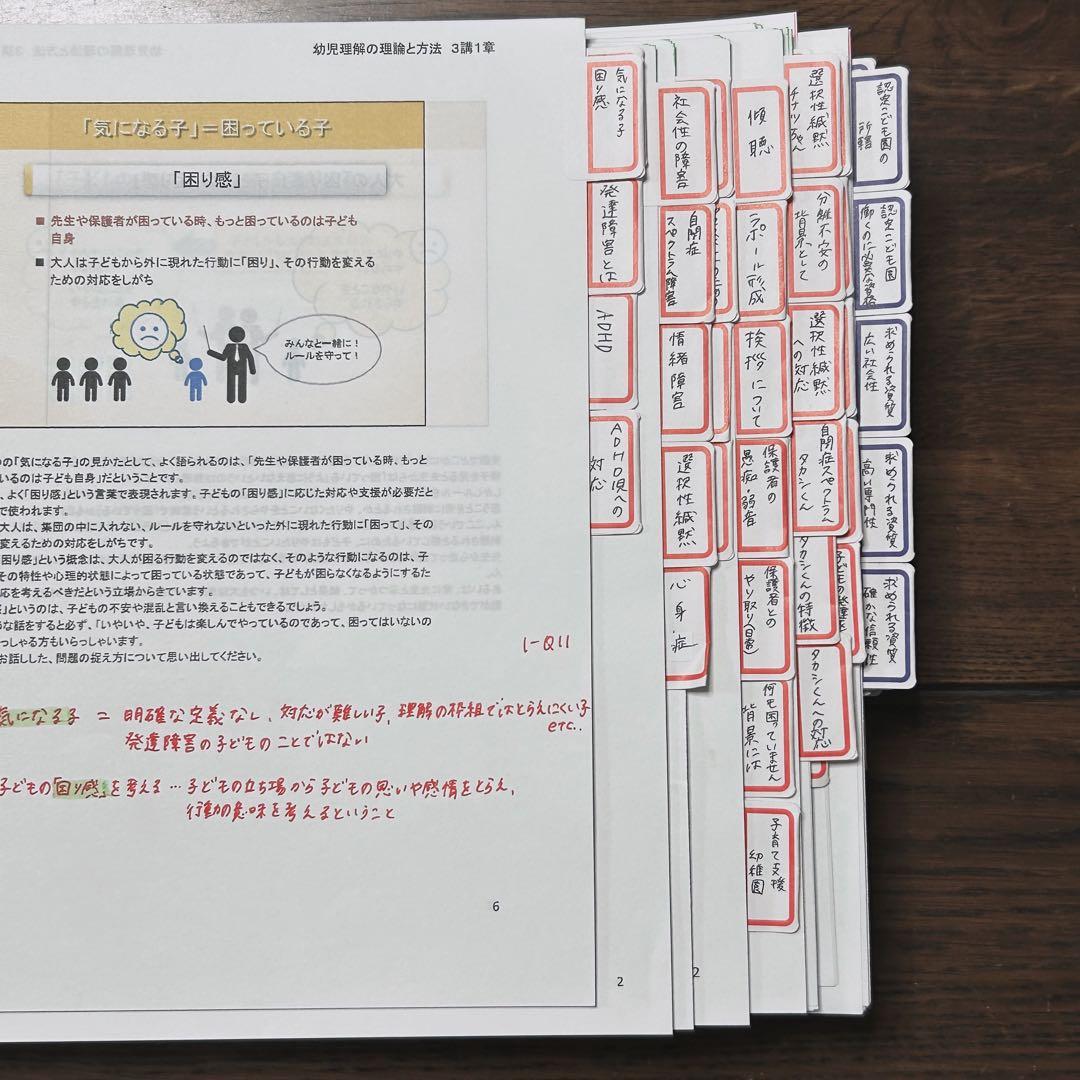 幼児理解の理論と方法 3講1章
「気になる子」＝困っている子
「困り感」
■ 先生や保護者が困っている時、もっと困っているのは子ども
自身
■ 大人は子どもから外に現れた行動に「困り」、その行動を変える
ための対応をしがち
みんなと一緒に！
ルールを守って！
の「気になる子」の見かたとして、よく語られるのは、「先生や保護者が困っている時、もっと
いるのは子ども自身」だということです。
、よく「困り感」という言葉で表現されます。子どもの「困り感」に応じた対応や支援が必要だと
で使われます。
大人は、集団の中に入れない、ルールを守れないといった外に現れた行動に「困って」、その
変えるための対応をしがちです。
困り感」という概念は、大人が困る行動を変えるのではなく、そのような行動になるのは、子
その特性や心理的状態によって困っている状態であって、子どもが困らなくなるようにするた
応を考えるべきだという立場からきています。
」というのは、子どもの不安や混乱と言い換えることもできるでしょう。
な話をすると必ず、「いやいや、子どもは楽しんでやっているのであって、困ってはいないの
っしゃる方もいらっしゃいます。
お話しした、問題の捉え方について思い出してください。
1-Q11
気になる子 = 明確な定義なし、対応が難しい子、理解の枠組ではとらえにくい子
etc..
発達障害の子どものことではない
子どもの「困り感」を考える … 子どもの立ち場から子どもの思いや感情をとらえ、
行動の意味を考えるということ
6
2
2
気になる子
困り感
発達障害とは
ADHD
ADHD児への
対応
社会性の障害
自閉症
スペクトラム障害
情緒障害
選択性緘黙
心身症
傾聴
ラポール形成
挨拶について
保護者の
愚痴・弱音
保護者との
やり取り(日常)
何も困っていません
背景には
子育て支援
幼稚園
選択性緘黙
チナツちゃん
分離不安の
背景として
選択性緘黙
への対応
自閉症スペクトラム
タカシくん
タカシくんの特徴
子どもの発達を
タカシくんへの対応
認定こども園の
所轄
認定こども園
働くのに必要な資格
求められる資質
広い社会性
求められる資質
高い専門性
求められる資質
確かな信頼性